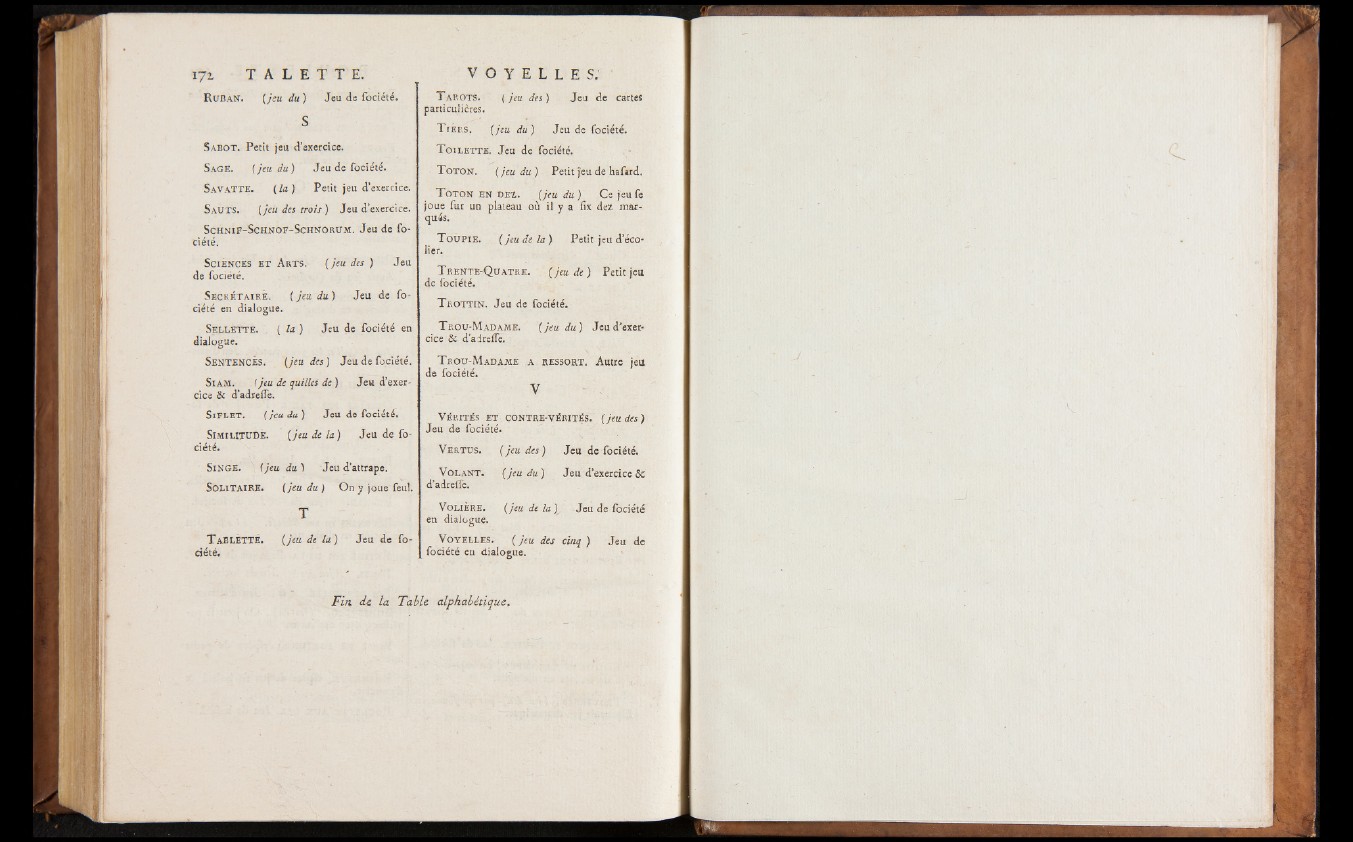 172 TALETTE.
RUBAN. (jeu du) Jeu de ſociété.
S
SABOT. Petit jeu d'exercice.
SAGE. (jeu du) Jeu de ſociété.
SAVATTE. (la) Petit jeu d'exercice.
SAUTS. (jeu des trois) Jeu d'exercice.
SCHNIF-SCHNOF-SCHNORUM. Jeu de ſo-
ciété.
SCIENCES ET ARTS. (jeu des) Jeu
de ſociété.
SECRÉTAIRE. (jeu du) Jeu de ſo-
ciété en dialogue.
SELLETTE. (la) Jeu de ſociété en
dialogue.
SENTENCES. (jeu des) Jeu de ſociété.
SIAM. (jeu de quilles de) Jeu d'exer-
cice & d'adreſſe.
SIFLET. (jeu du) Jeu de ſociété.
SIMILITUDE. (jeu de la) Jeu de ſo-
ciété.
SINGE. (jeu du) Jeu d'attrape.
SOLITAIRE. (jeu du) On y joue ſeul.
T
TABLETTE. (jeu de la) Jeu de ſo-
ciété.
VOYELLES.
TAROTS. (jeu des) Jeu de cartes
particulières.
TIERS. (jeu du) Jeu de ſociété.
TOILETTE. Jeu de ſociété.
TOTON. (jeu du) Petit jeu de haſard.
TOTON EN DEZ. (jeu du) Ce jeu ſe
joue ſur un plateau où il y a ſix dez mar-
qués.
TOUPIE. (jeu de la) Petit jeu d'éco-
lier.
TRENTE-QUATRE. (jeu de) Petit jeu
de ſociété.
TROTTIN. Jeu de ſociété.
TROU-MADAME. (jeu du) Jeu d'exer-
cice & d'adreſſe.
TROU-MADAME A RESSORT. Autre jeu
de ſociété.
V
VÉRITÉS ET CONTRE-VÉRITÉS. (jeu des)
Jeu de ſociété.
VERTUS. (jeu des) Jeu de ſociété.
VOLANT. (jeu du) Jeu d'exercice &
d'adreſſe.
VOLIÈRE. (jeu de la) Jeu de ſociété
en dialogue.
VOYELLES. (jeu des cinq) Jeu de
ſociété en dialogue.
Fin de la Table alphabétique.